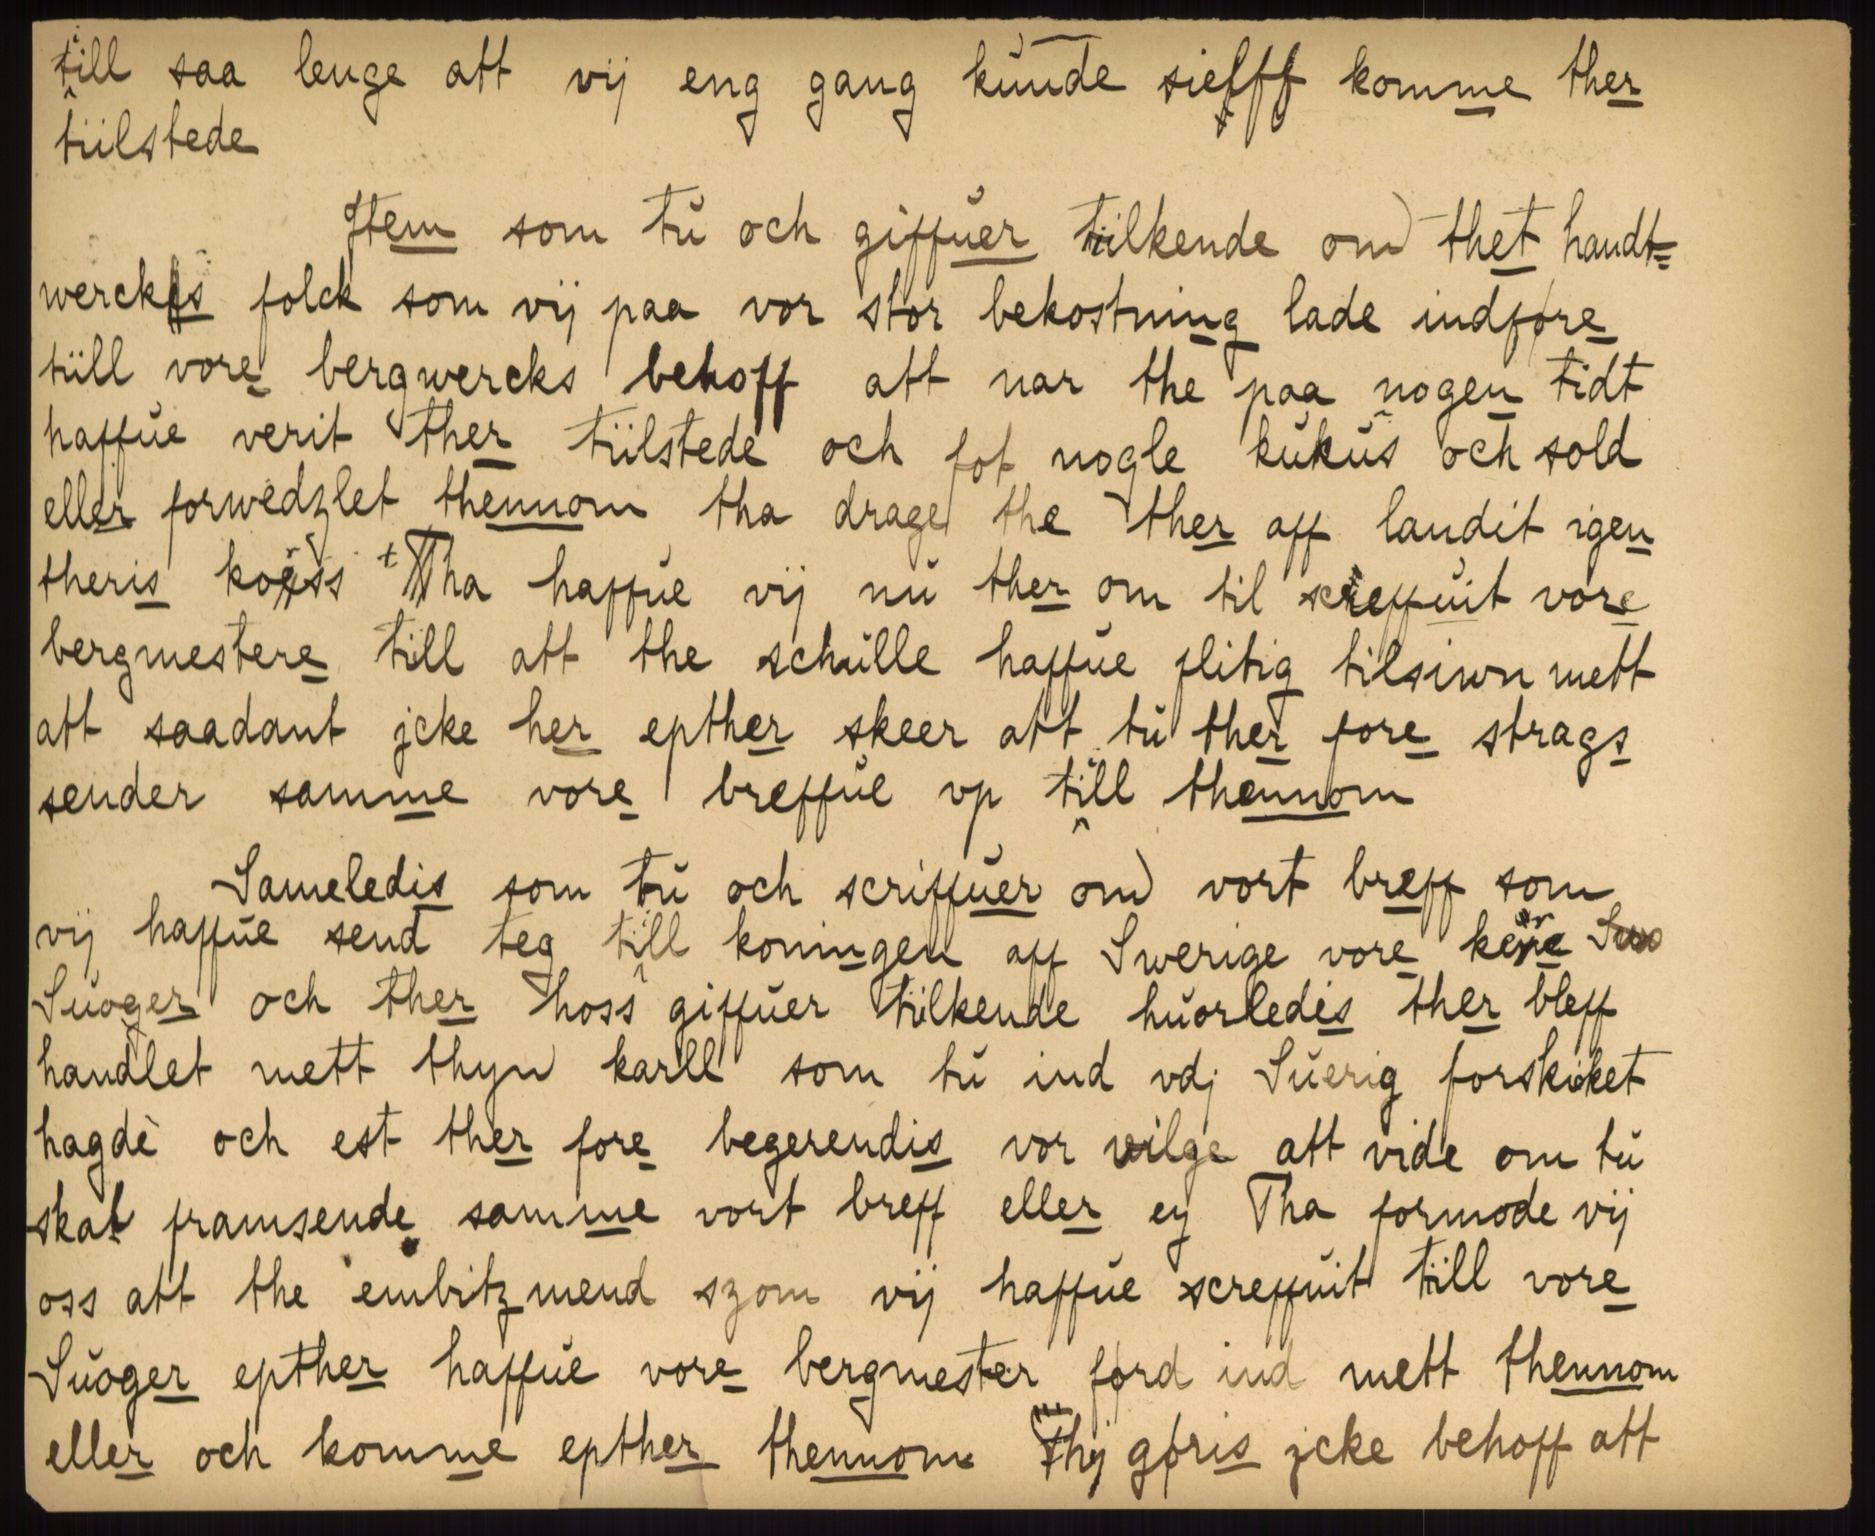 till saa lenge att vij eng gang kunde sielfff komme ther
tiilstede
Jtem som tu och giffuer tiilkende om thet handt=
werckis folck som vij paa vor stor bekostning lade indføre
tiill vore bergwercks behoff att nar the paa nogen tidt
haffue verit ther tiilstede och fot nogle kukus och sold
eller forwedzlet thennom tha drage the ther aff landit igen
theris koess Tha haffue vij nu ther om til screffuit vore
bergmestere till att the schulle haffue flitig tilsiwn mett
att saadant jcke her epther skeer att tu ther fore strags
sender samme vore breffue vp till thennom
Sameledis som tu och scriffuer om vort breff som
vij haffue send teg till koningen aff Swerige vore kere
Suoger och ther hoss giffuer tiilkende huorledis ther bleff
handlet mett thyn karll som tu ind vdj Suerig forskicket
hagde och est ther fore begerendis vor vilge att vide om tu
skal framsende samme vort breff eller ey Tha formode vij
oss att the embitzmend szom vij haffue screffuit till vore
Suoger epther haffue vore bergmester førd ind mett thennom
eller och komme epther thennom Thj gøris jcke behoff att